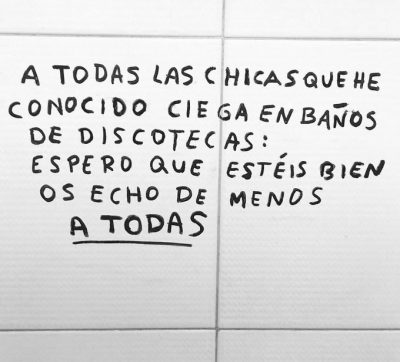 A TODAS LAS CHICAS QUE HE
CONOCIDO CIEGA EN BAÑOS
DE DISCOTECAS:
ESPERO QUE ESTÉIS BIEN
OS ECHO DE MENOS
A TODAS